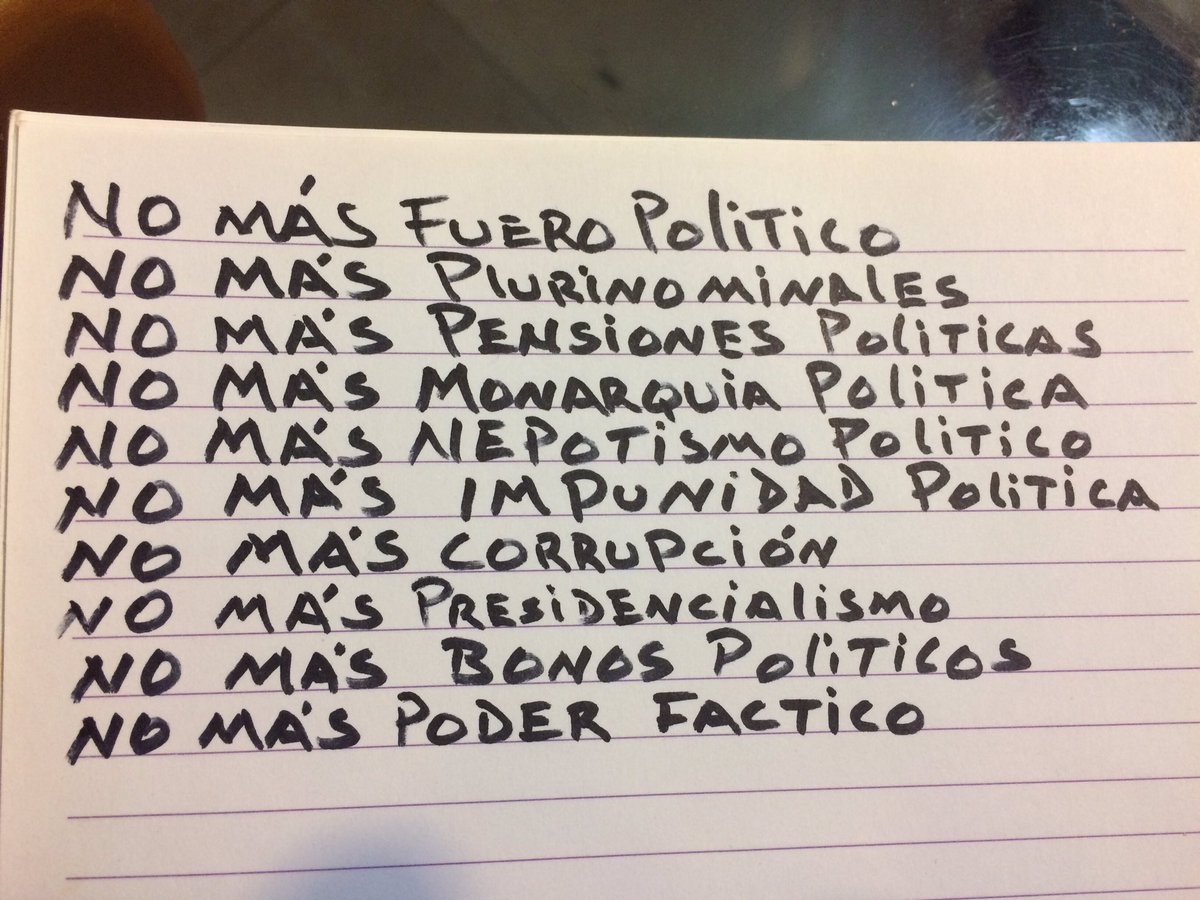 NO MÁS FUERO POLITICO
NO MÁS PLURINOMINALES
NO MÁS PENSIONES POLITICAS
NO MÁS MONARQUIA POLITICA
NO MÁS NEPOTISMO POLITICO
NO MÁS IMPUNIDAD POLITICA
NO MÁS CORRUPCIÓN
NO MÁS PRESIDENCIALISMO
NO MÁS BONOS POLITICOS
NO MÁS PODER FACTICO